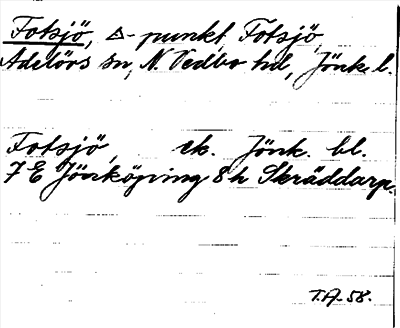 Fotsjö, △-punkt, Fotsjö,
Adelövs sn, N. Vedbo hd, Jönk. l.
Fotsjö, ek. Jönk. bl.
7 E Jönköping 8 h Skräddarp.
T.A-58.